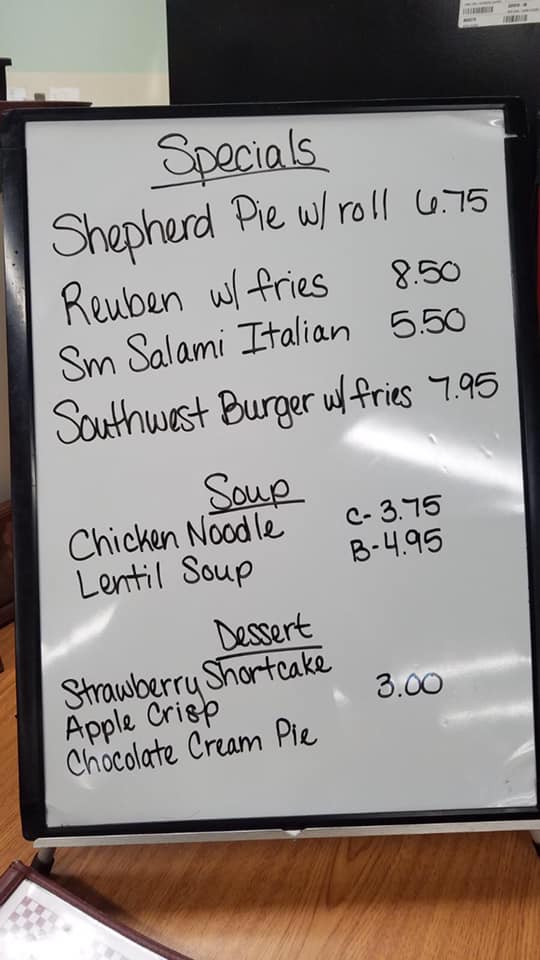 Specials
Shepherd Pie w/ roll 6.75
Reuben w/ fries 8.50
Sm Salami Italian 5.50
Southwest Burger w/ fries 7.95
Soup
Chicken Noodle C- 3.75
Lentil Soup B- 4.95
Dessert
Strawberry Shortcake
Apple Crisp 3.00
Chocolate Cream Pie